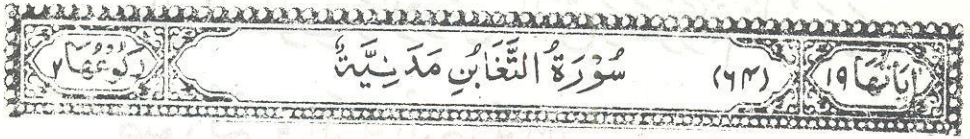 اٰیَاتُهَا ۱۹ (۶۴) سُوْرَةُ التَّغَابُنِ مَدَنِيَّةٌ رُكُوْعُهَا ۲